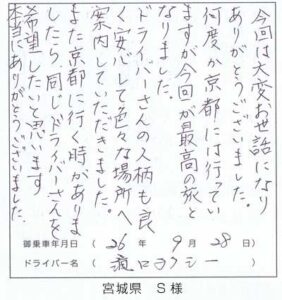 今回は大変お世話になり
ありがとうございました。
何度か京都には行ってい
ますが今回が最高の旅と
なりました。
ドライバーさんの人柄も良
く安心して色々な場所へ
案内していただきました。
また京都に行く時がありま
したら、同じドライバーさんを
希望したいと思います
本当にありがとうございました。
御乗車年月日 ( 26 年 9 月 28 日)
ドライバー名 ( 滝口タクシー )
宮城県 S 様